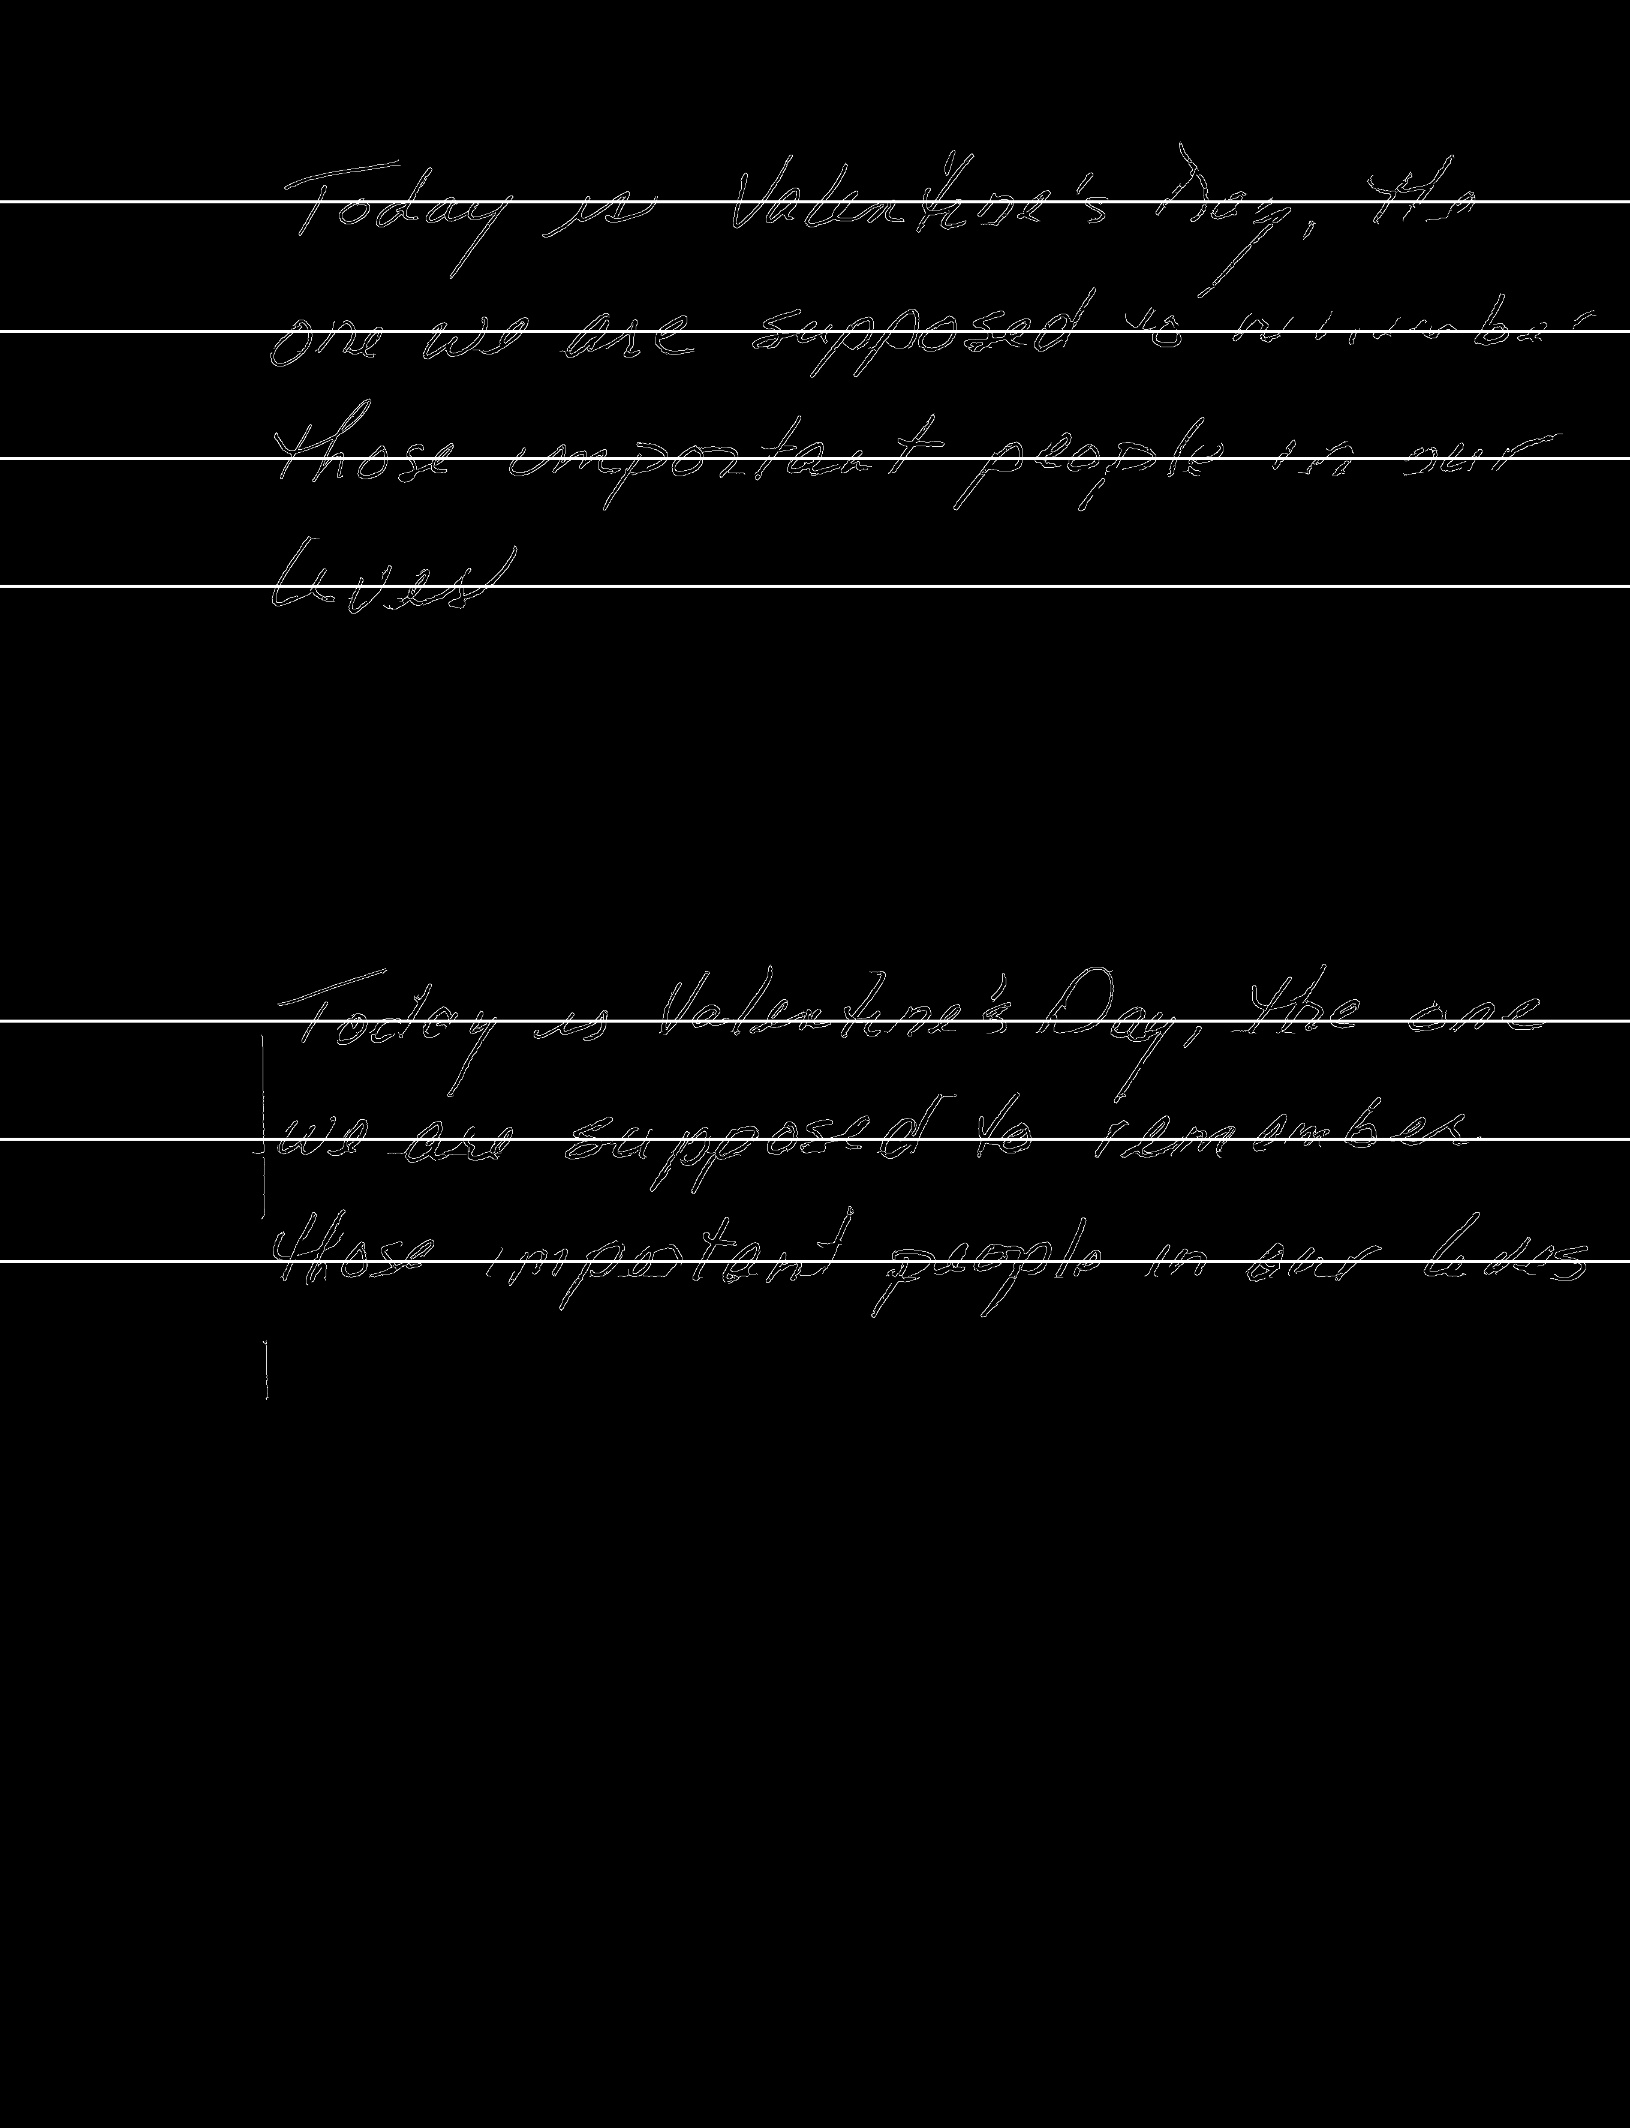 Today is Valentine's Day, the
one we are supposed to remember
those important people in our
lives
Today is Valentine's Day, the one
we are supposed to remember
those important people in our lives